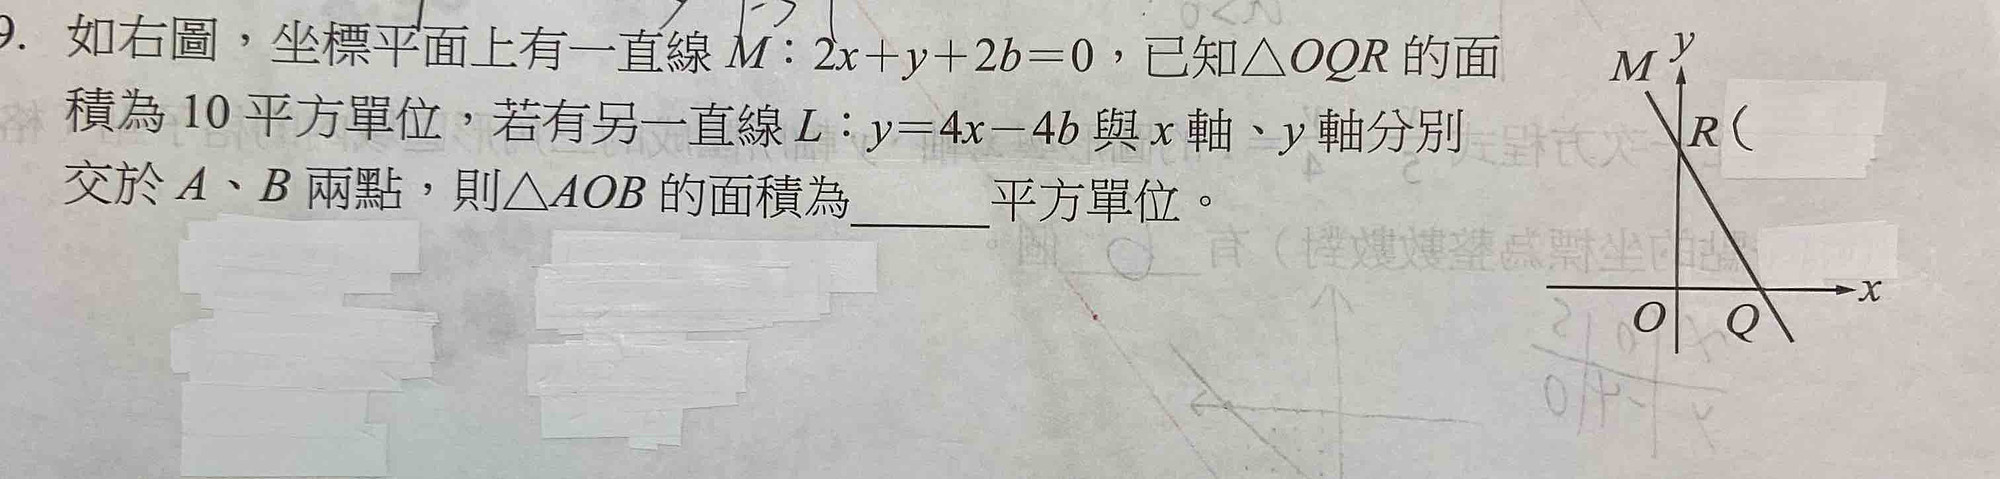 9. 如右圖，坐標平面上有一直線 M：2x+y+2b=0，已知△OQR 的面
積為 10 平方單位，若有另一直線 L：y=4x-4b 與 x 軸、y 軸分別
交於 A、B 兩點，則△AOB 的面積為____平方單位。
M y
R(
x
O Q